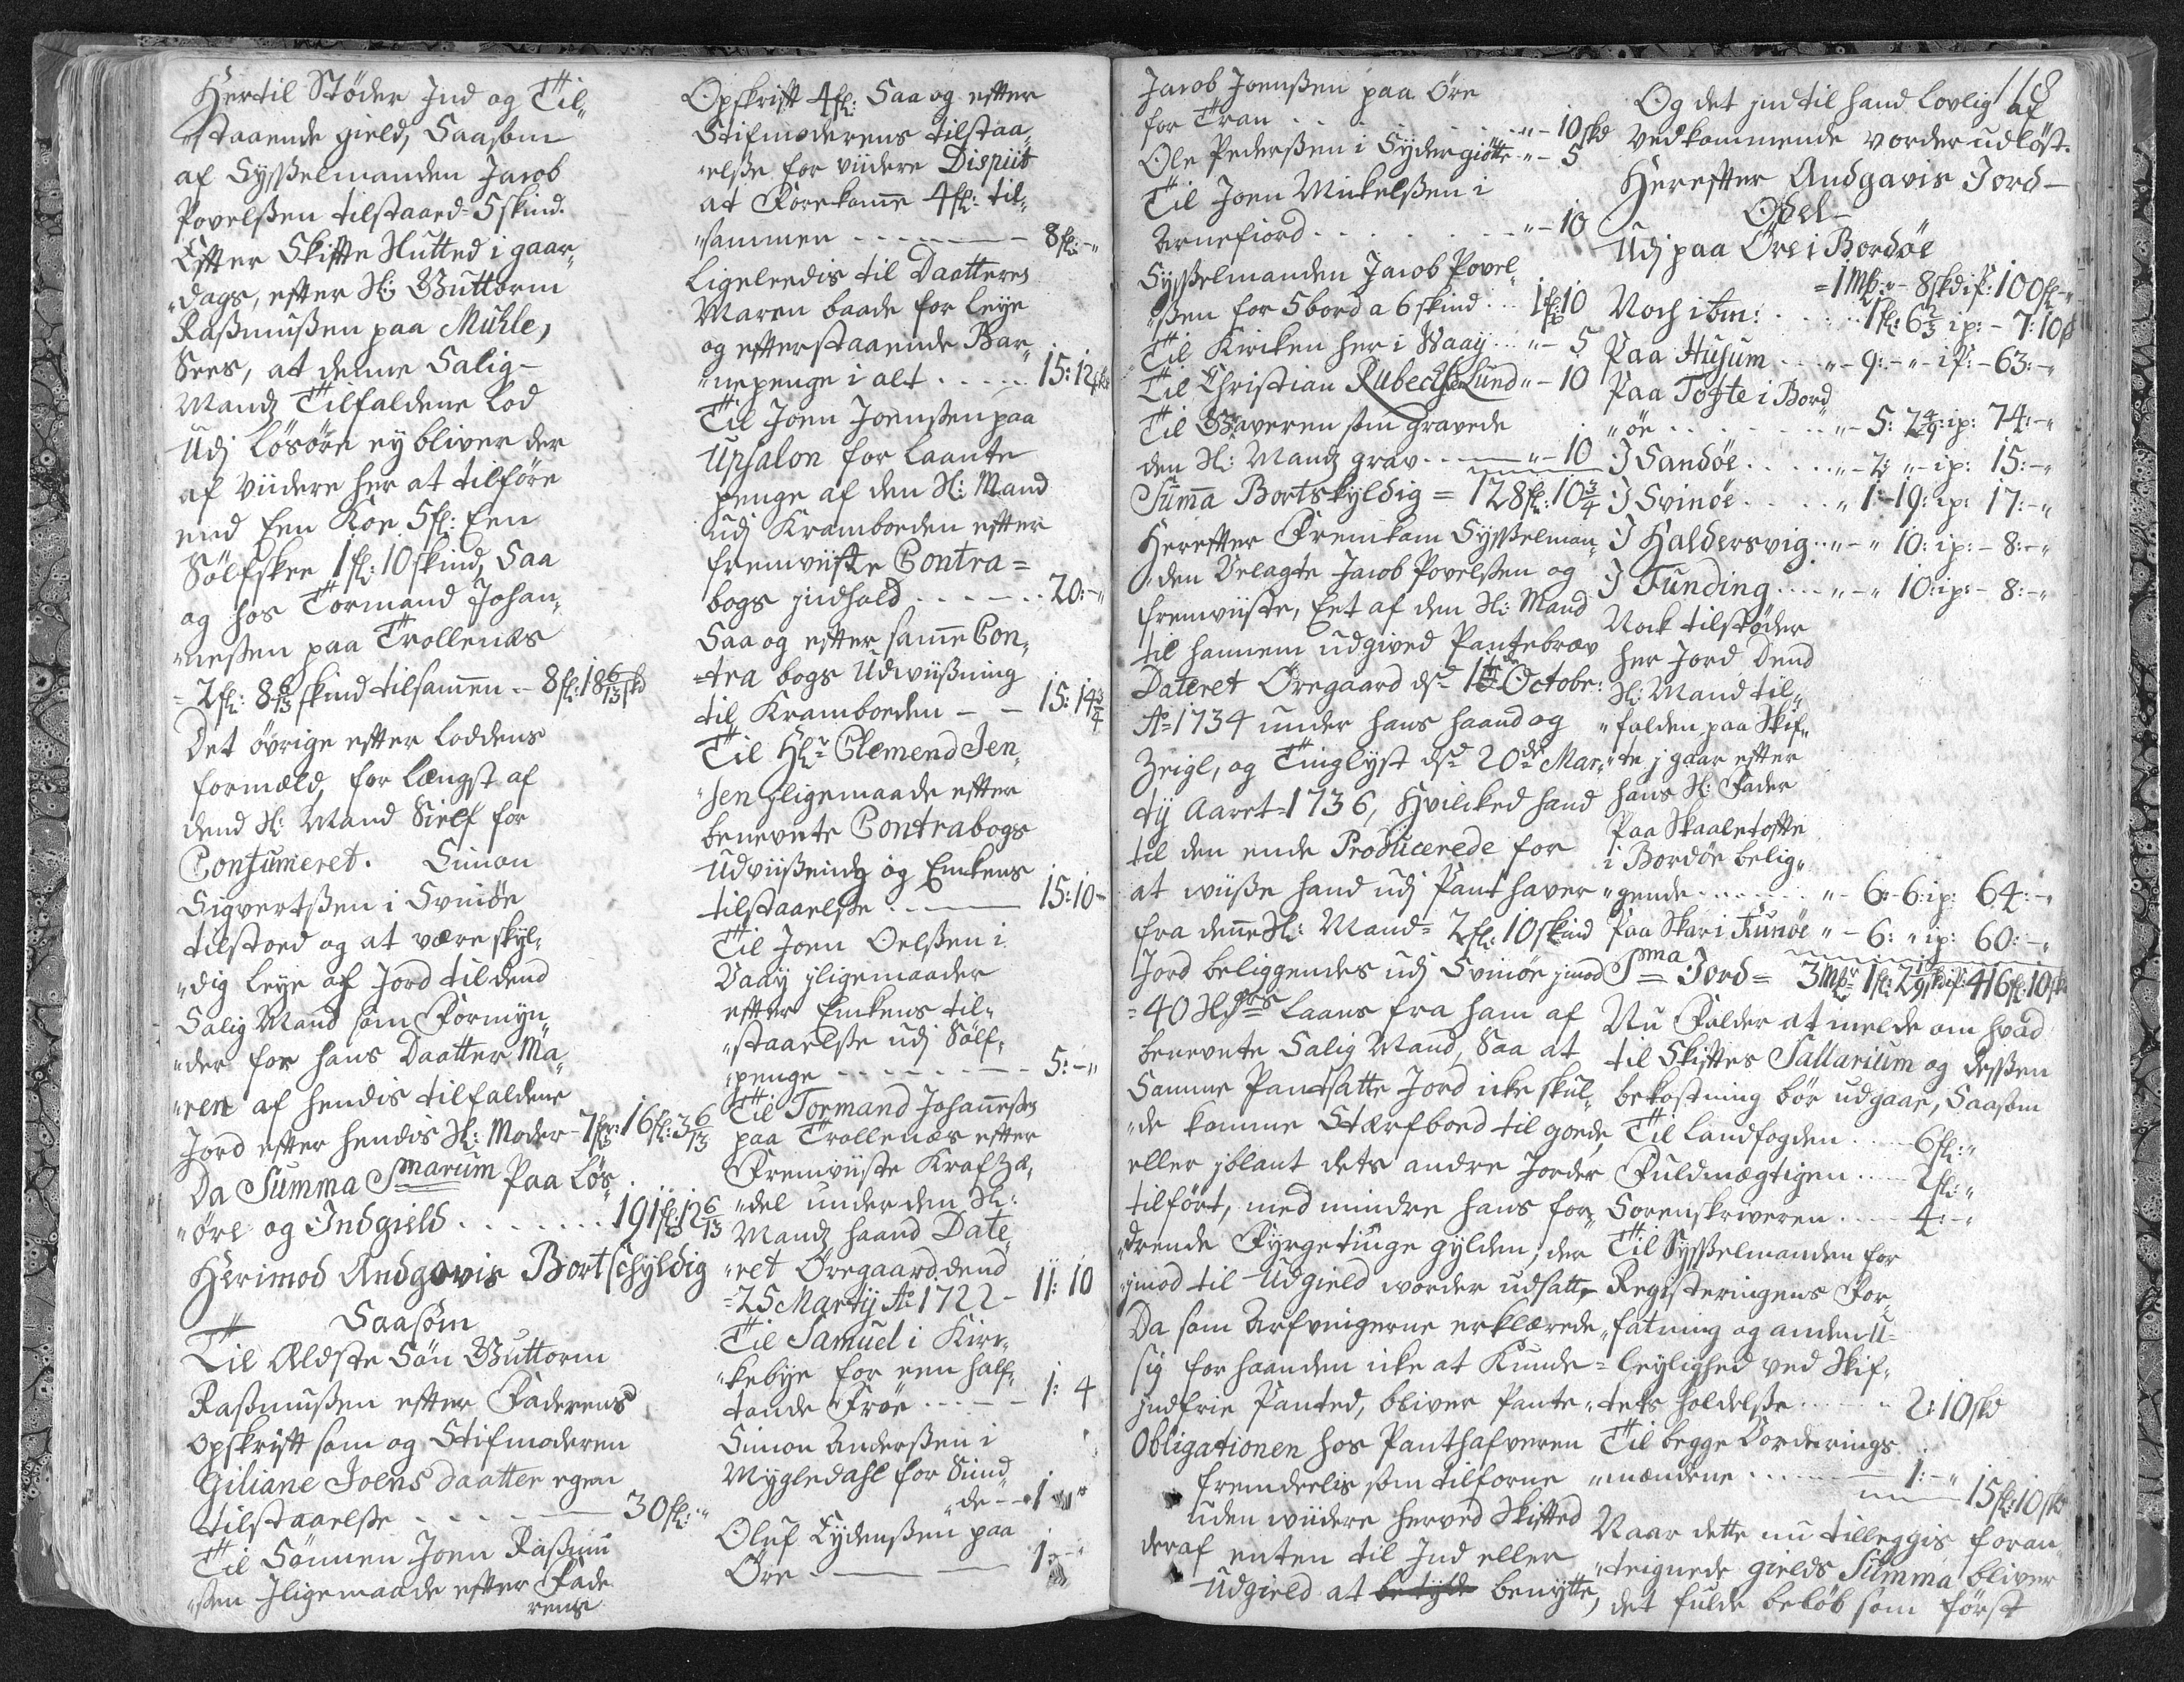 Hertil Støder Ind og Til„
„staaende gield, Saasom
af Sysselmanden Jacob
Povelßen tilstaaed = 5 skind.
Efter Skifte Slutted i gaar„
„dags, efter Sl: Guttorm
Rasmußen paa Mühle,
Sees, at denne Salig-
Mands Tilfaldene Lod
Udj Løsøre ey bliver der
af viidere her at tilføre
end Een Koe 5 fl: Een
Sølfskee 1 fl: 10 skind, Saa
og hos Tormand Johan„
„neßen paa Trollenæs
= 2 fl: 8 6/13 skind tilsamen .. 8 fl: 18 6/13 skd
Det øvrige efter Loddens
formæld, for længst af
dend Sl: Mand Sielf for
Consumeret. Simon
Sigvertßen i Svinöe
tilstoed og at være skyl„
„dig Leye af Jord til dend
Salig Mand som Formyn„
„der for hans Daatter Ma„
„ren af hendis tilfaldene
Jord efter hendis Sl: Moder - 7 16 fl: 3 6/13
Da Summa Smarum Paa Løs„
„øre og Indgield ....... 191 fl: 12 6/13
Herimod Andgavis Bortschyldig
Saasom
Til Ældste Søn Guttorm
Rasmußen efter Faderens
opskrift som og Stifmoderen
Giliane Joensdaatter egen
tilstaaelse ...... 30 fl: „
Til Sønnen Joen Rasmu
„ßen Jligemaade efter Fade
rens
Opskrift 4 fl: Saa og efter
Stifmoderens tilstaa„
„else for viidere Dispüt
at Forekome 4 fl: til„
„sammen ------ 8 fl: - „
Ligeleedis til Daatteren
Maren baade for Leye
og efterstaaende Bar„
„nepenge i alt ..... 15: 12 skd
Til Joen Joenßen paa
Upsalon for Laante
penge af den Sl: Mand
udj Kramboeden efter
fremviiste Contra =
bogs jndhold ...... 20: - „
Saa og efter same Con„
=tra bogs Udviisning
til Kramboeden - - 15: 14 3/4
Til Hr Clemend Jen„
„sen jligemaade efter
benevnte Contrabogs
Udviisning og Enkens
tilstaaelse ..—— 15: 10 -
Til Joen Oelßen i
Vaaij jligemaader
efter Enkens til„
„staaelse udj Sølf„
„penge ------- 5: - „
Til Tormand Johaneßen
paa Trollenæs efter
Fremviiste Krafzæ„
„del under den Sl:
Mands haand Date„
„ret Öregaard dend
= 25 Martij Ao 1722 - 11: 10
Til Samuel i Kir„
„kebye for een half„
tønde Frøe .... - 1: 4
Simon Anderßen i
Mygledahl for Sund„
„de - - 1 „
Oluf Eydenßen paa
Öre .—— — 1: - „
Jacob Joenßen paa Öre
for Tran . . . . . . . „ - 10 skd
Ole Pederßen i Sydergiötte „ - 5
Til Joen Mickelßen i
Arnefiord . . . . . . „ - 10
Sysselmanden Jacob Povel„
„ßen for 5 bord a 6 skind .. 1 fl: 10
Til Kirken her i Vaaij ... „ - 5
Til Christian Rubeckßen Lund „ - 10
Til Graveren som gravede
den Sl: Mands grav ..—— „ - 10
Suma Bortskyldig = 128 fl: 10 3/4
Herefter Fremkam Sysselman„
„den Velagte Jacob Povelßen og
fremviiste, Eet af den Sl: Mand
til hannem udgived Pantebrev
Dateret Öregaard ds 1te Octobr:
Ao 1734 under hans haand og
Zeigl, og Tinglyst ds 20de Mar„
tij Aaret = 1736, Hvilcked hand
til den ende Producerede for
at viise hand udj Pant haver
fra dene Sl: Mand = 2 fl: 10 skind
Jord beliggendes udj Svinöe jmod
= 40 Laans fra ham af
benevnte Salig Mand, Saa at
Samme Pandsatte Jord icke skul„
„de komme Stærfboed til goede
eller jblant dets andre Jorder
tilført, med mindre hans for„
„drende Fyrgetinge gylden, der
jmod til Udgield vorder udsatt,
Da som Arfvingerne erklærede
sig for haanden icke at Kunde
jndfrie Panted, bliver Pante„
Obligationen hos Panthafveren
fremdeelis som tilforne
uden viidere herved Skifted
deraf enten til Ind eller
Udgield at betyde benytte,
118
Og det jndtil hand lovlig af
vedkommende vorder udløst.
Herefter Andgavis Jord-
Odel-
Udj paa Öre i Bordöe
= 1 Mk: „ - 8 skd is: 100 fl - „
Noch ibm: . . . . 1 fl: 6 2/3 ip: - 7: 10
Paa Husum ... „ - 9: - „ - ip: - 63: - „
Paa Tofte i Bord
„öe . . . . . . „ - 5: 7 4/9: ip: 74: - „
I Sandöe . . . . „ - 2: „ - ip: 15: - „
I Svinöe . . . . „ 1: 19: ip: 17: - „
I Haldersvig .. „ - „ 10: ip: - 8: - „
I Funding .... „ - „ 10: ip: - 8: - „
Nock tilstøder
her Jord dend
Sl: Mand til„
„falden paa Skif„
„te j gaar efter
hans Sl: Fader
Paa Skaaletofte
i Bordöe belig„
„gende ....... „ - 6: - 6: ip: 64: - „
Paa Skar i Kunöe „ - 6: „ ip: 60: - „
Sma Jord = 3 Mk 1 fl: 2 1/9 skd ip: 416 fl: 10 skd
Nu Falder at melde om hvad
til Skiftes Sallarium og dessen
bekostning bör udgaae, Saasom
Til Landfogden ..... 6 fl: „
Fuldmægtigen .... 2 fl: „
Sorenskriveren .... 4: - „
Til Sysselmanden for
Registeringens For„
„fatning og anden u=
=leylighed ved Skif„
„tets holdelse ..... 2: 10 skd
Til begge Vorderings
„mændene ......—— 1: - „
15 fl: 10 skd
Naar dette nu tilleggis foran„
„teignede gields Summa, bliver
det fulde beløb som først